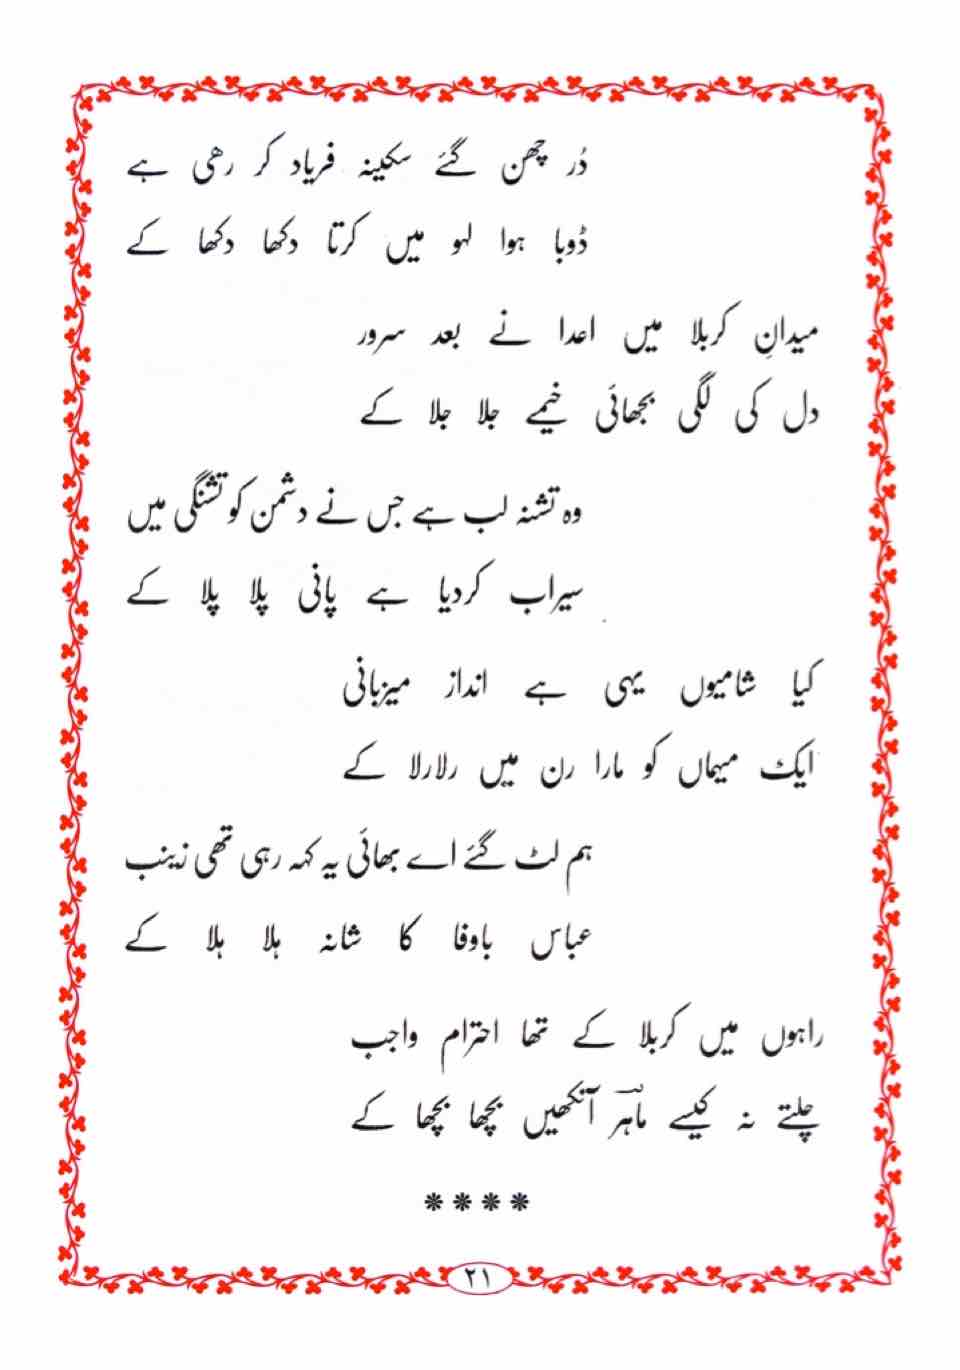 دُر چھن گئے سکینہ فریاد کر رھی ہے
ڈوبا ہوا لہو میں کرتا دکھا دکھا کے
میدانِ کربلا میں اعدا نے بعد سرور
دل کی لگی بجھائی خیمے جلا جلا کے
وہ تشنہ لب ہے جس نے دشمن کو تشنگی میں
سیراب کردیا ہے پانی پلا پلا کے
کیا شامیوں یہی ہے انداز میزبانی
ایک میہماں کو مارا رن میں رلارلا کے
ہم لٹ گئے اے بھائی یہ کہہ رہی تھی زینب
عباس باوفا کا شانہ ہلا ہلا کے
راہوں میں کربلا کے تھا احترام واجب
چلتے نہ کیسے ماہرؔ آنکھیں بچھا بچھا کے
****
۲۱